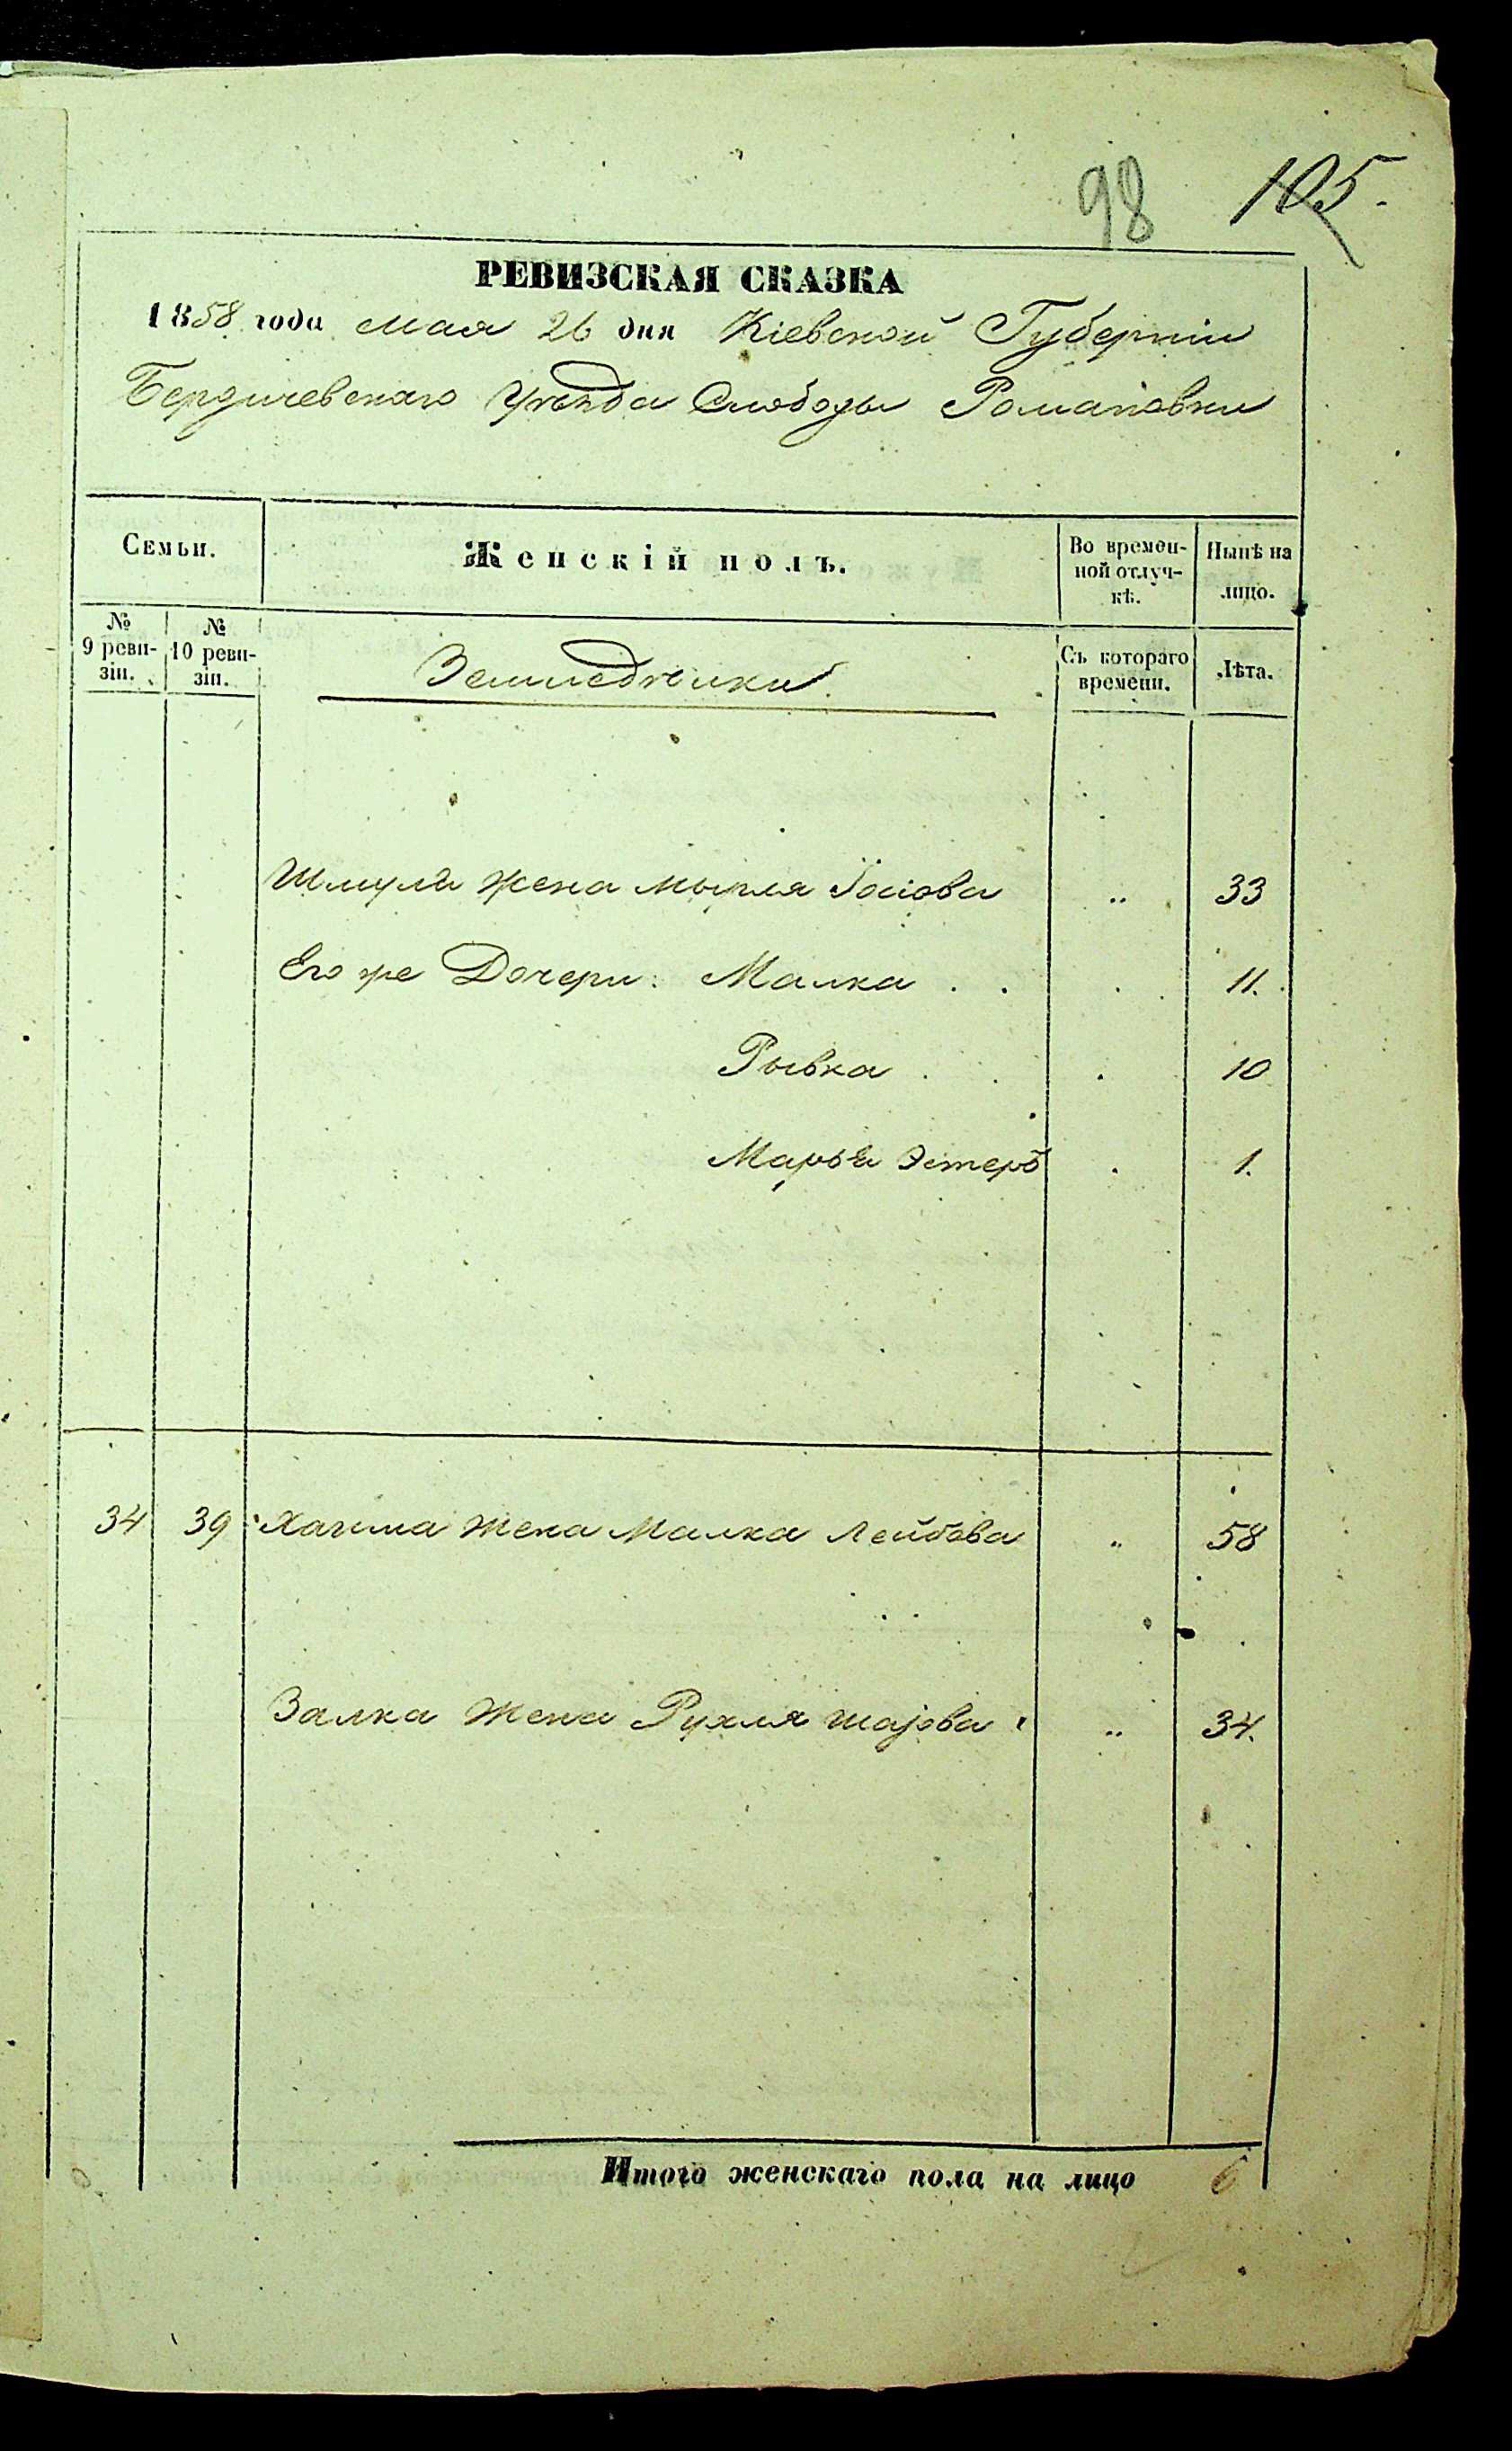 98 105.
РЕВИЗСКАЯ СКАЗКА
1858 года Мая 26 дня Кіевской Губерніи
Бердичевскаго Уѣзда Слободы Романовки
Семьи. Женскій полъ. Во времен-
ной отлуч-
кѣ. Нынѣ на
лицо.
№
9 реви-
зіи. №
10 реви-
зіи. Земледѣлки. Съ котораго
времени. Лѣта.
Шмуля жена Мырля Іосіова „ 33
Его же Дочери: Малка . . . 11.
Рывка . . . 10
Марья Эстеръ . 1.
34 39 Хаима жена Малка Лейбова „ 58
Залка жена Рухля Шаіова „ 34.
Итого женскаго пола на лицо 6